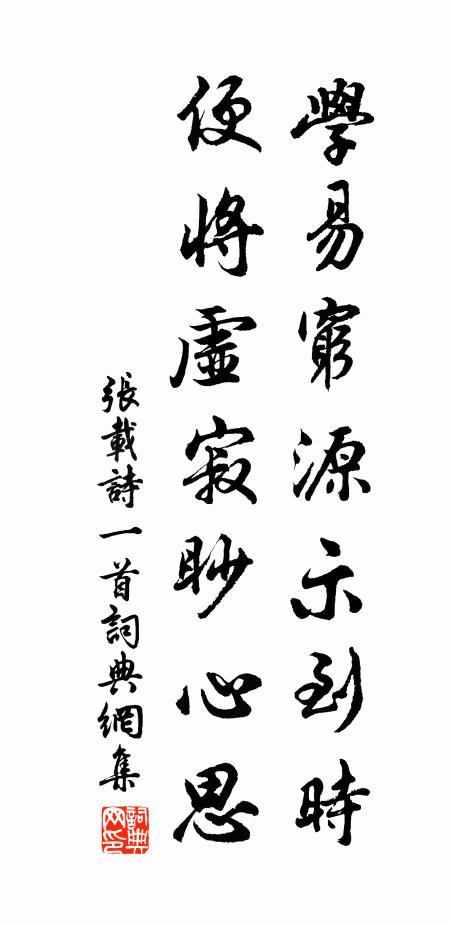 學易窮源示到時
便將虛寂眇心思
張載詩一首詞典網集
詞典
网印